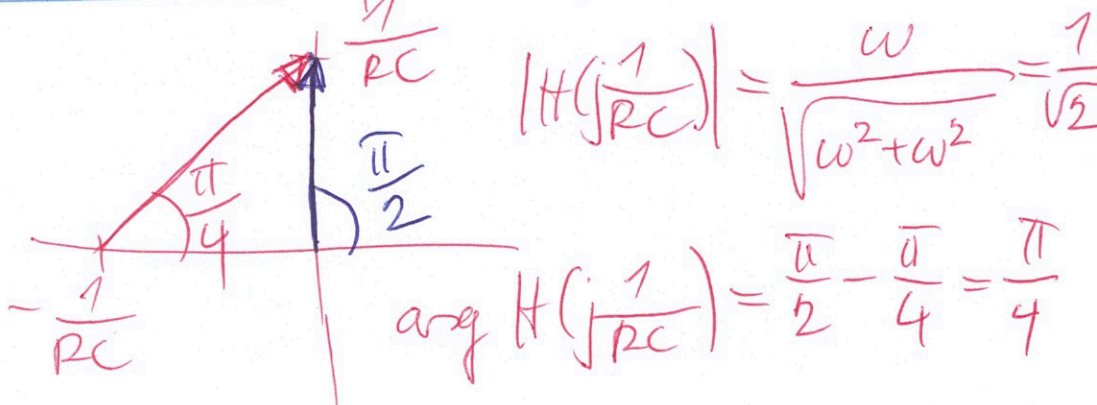 1/RC
|H(j 1/RC)| = ω/√(ω²+ω²) = 1/√2
π/4
π/2
-1/RC
arg H(j 1/RC) = π/2 - π/4 = π/4